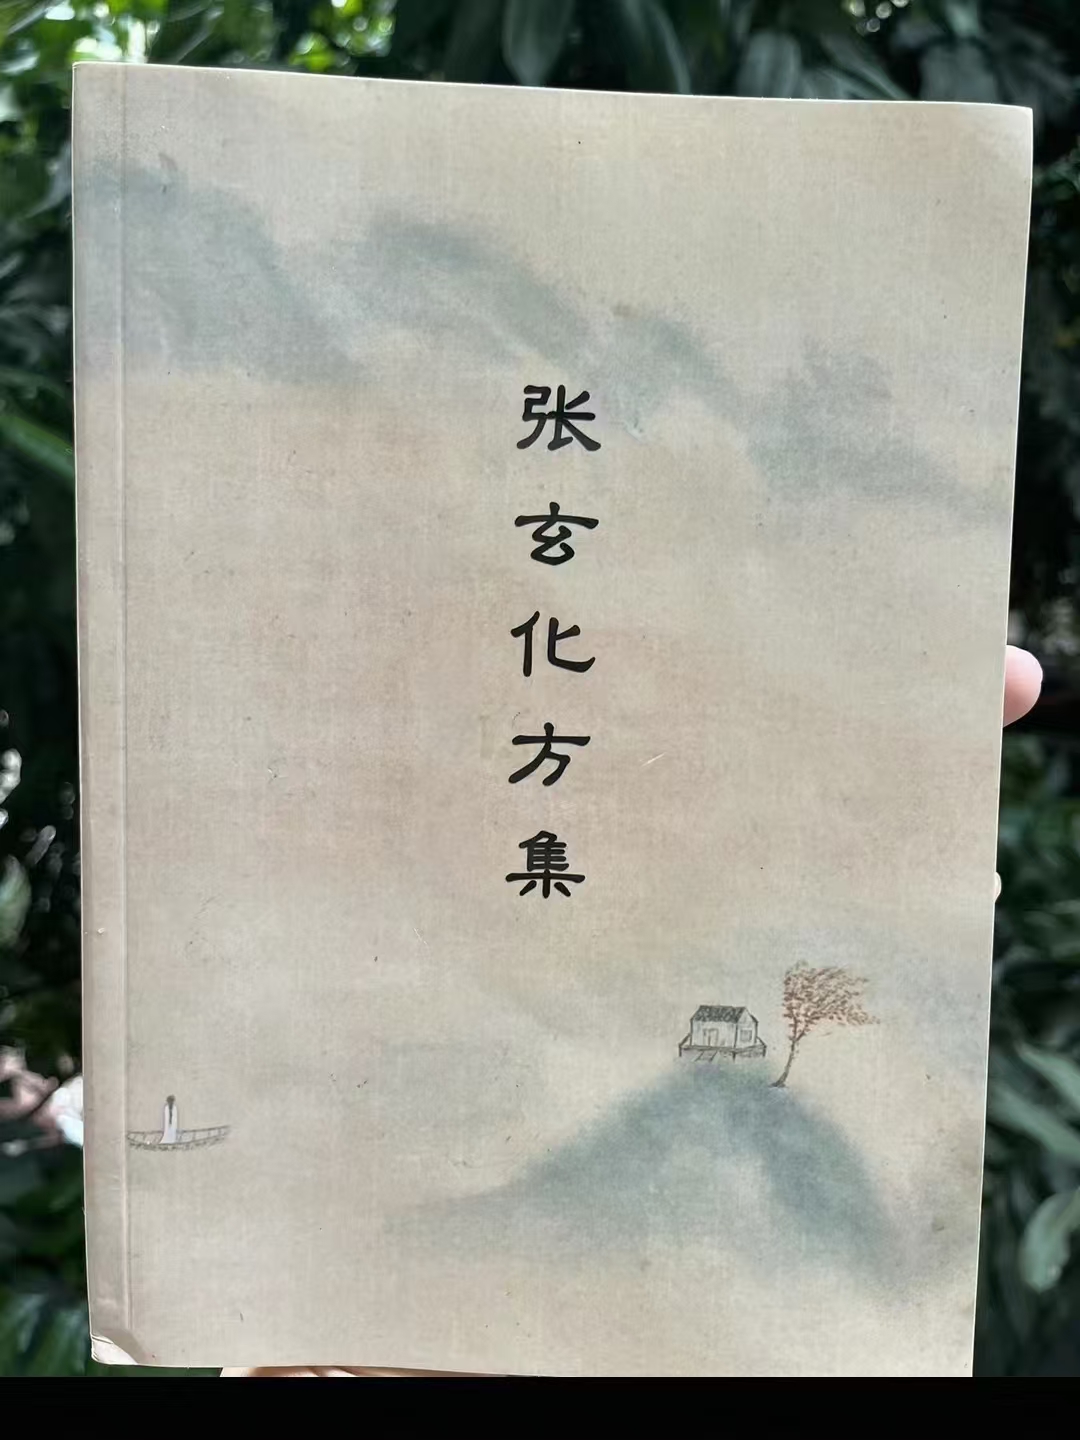 张玄化方集